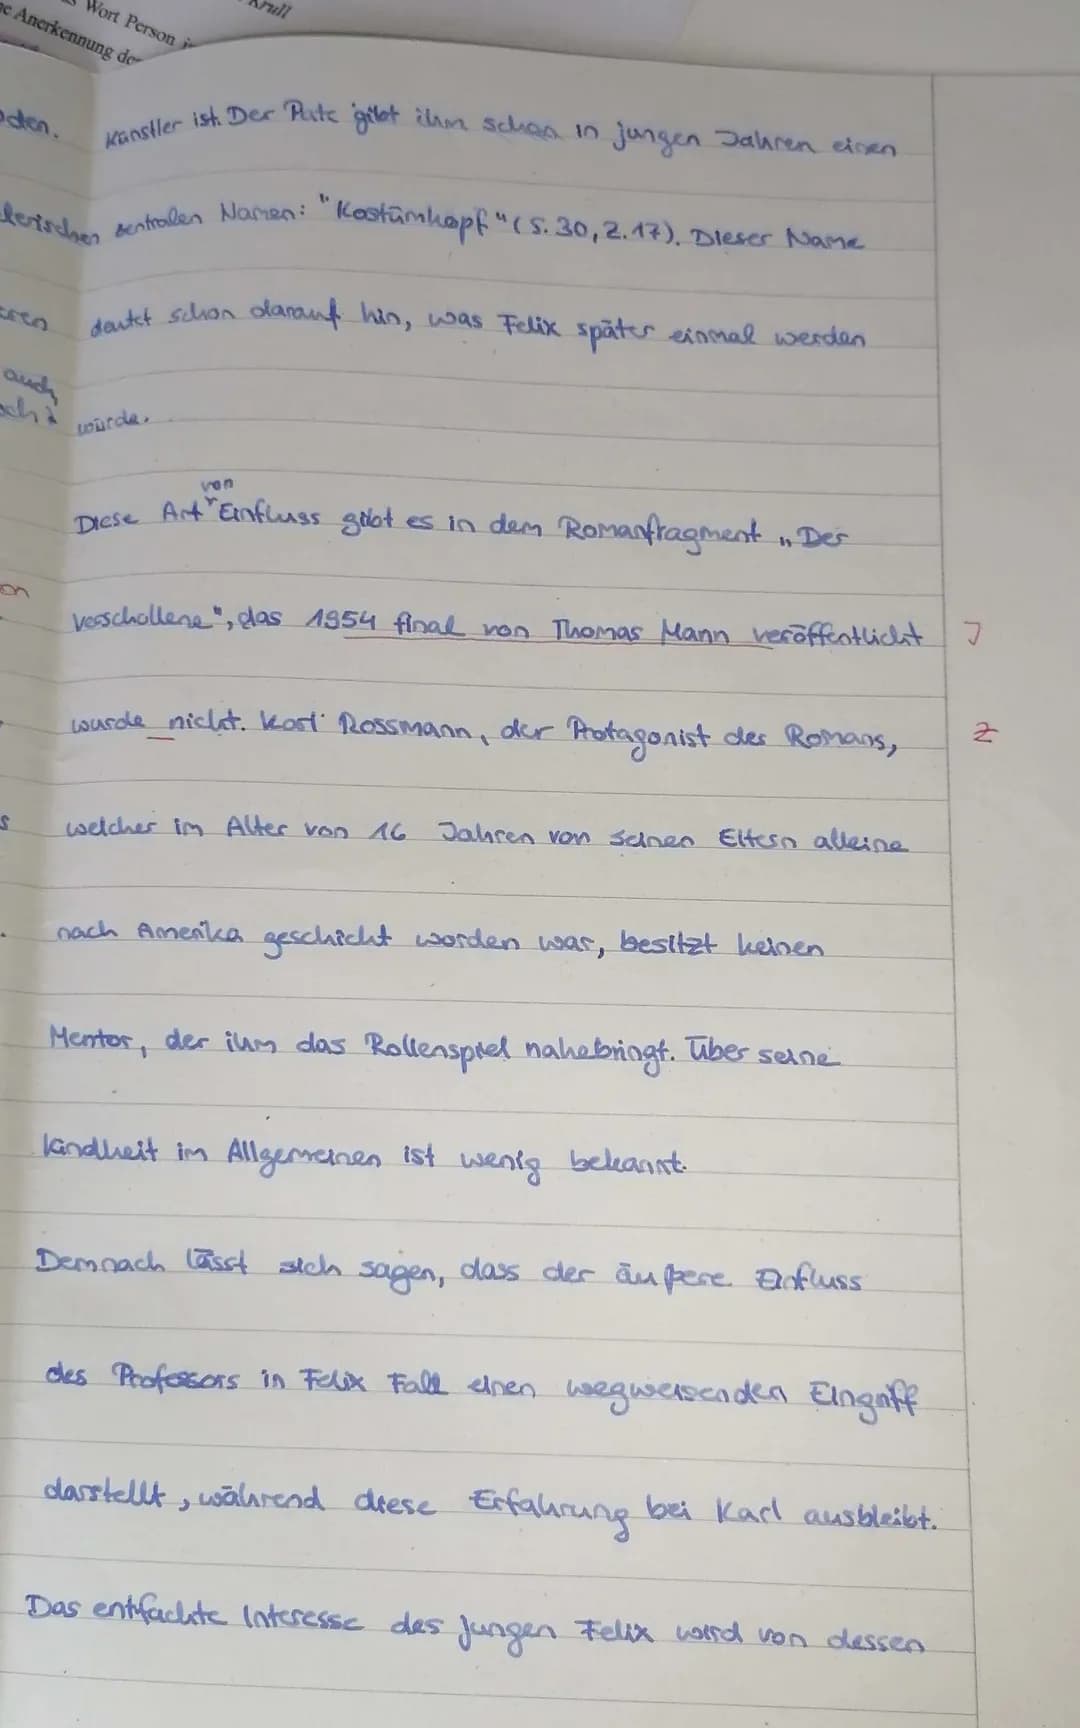 Krull
Wort Person
Anerkennung de
künstler ist. Der Pate gibt ihm schon in jungen Jahren einen
zentralen Namen: "Kostümkopf" (S. 30, Z. 17). Dieser Name
deutet schon darauf hin, was Felix später einmal werden
auch
würde.
von
Diese Art Einfluss gibt es in dem Romanfragment „Der
verschollene", das 1954 final von Thomas Mann veröffentlicht J
wurde nicht. Karl Rossmann, der Protagonist des Romans, Z
welcher im Alter von 16 Jahren von seinen Eltern alleine
nach Amerika geschickt worden war, besitzt keinen
Mentor, der ihm das Rollenspiel nahebringt. Über seine
Kindheit im Allgemeinen ist wenig bekannt.
Demnach lässt sich sagen, dass der äußere Einfluss
des Professors in Felix Fall einen wegweisenden Eingriff
darstellt, während diese Erfahrung bei Karl ausbleibt.
Das entfachte Interesse des jungen Felix wird von dessen